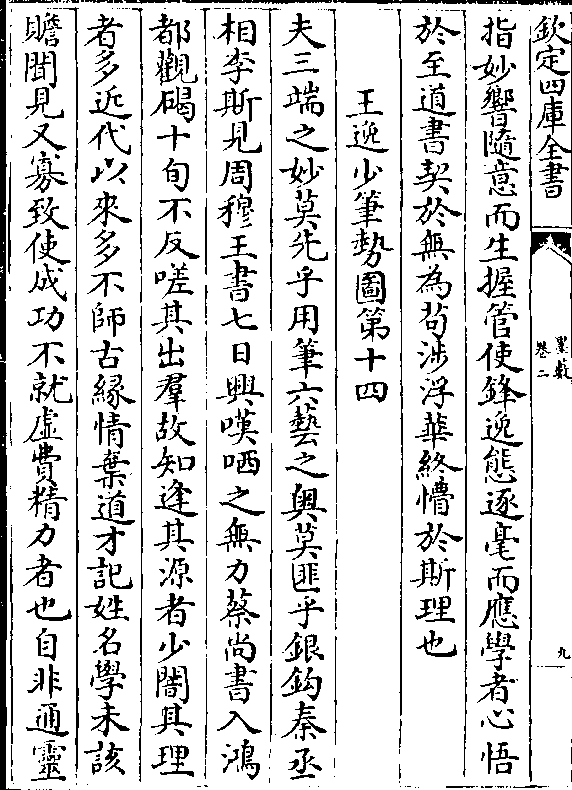 欽定四庫全書
墨藪
卷二
九
指妙響隨意而生握管使鋒逸態逐毫而應學者心悟
於至道書契於無為苟涉浮華終懵於斯理也
王逸少筆勢圖第十四
夫三端之妙莫先乎用筆六藝之奥莫匪乎銀鈎秦丞
相李斯見周穆王書七日興嘆哂之無力蔡尚書入鴻
都觀碣十旬不反嗟其出羣故知逢其源者少闇其理
者多近代以來多不師古緣情棄道才記姓名學未該
贍聞見又寡致使成功不就虛費精力者也自非通靈